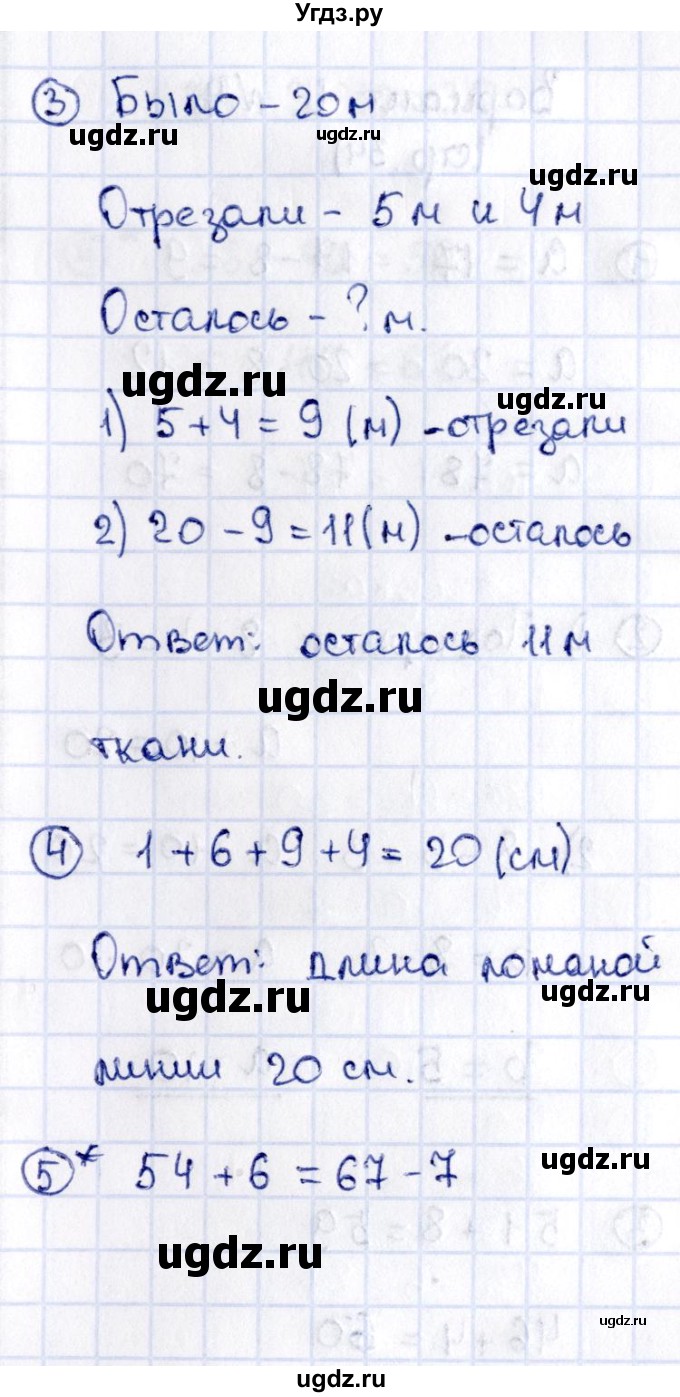 Угдз.ру
③ Было - 20 м
ugdz.ru ugdz.ru
ugdz.ru
Отрезали - 5 м и 4 м
Осталось - ? м.
ugdz.ru ugdz.ru
1) 5 + 4 = 9 (м) - отрезали
2) 20 - 9 = 11 (м) - осталось
Ответ: осталось 11 м
ugdz.ru
ткани.
④ 1 + 6 + 9 + 4 = 20 (см)
Ответ: длина ломаной
ugdz.ru ugdz.ru
линии 20 см.
⑤* 54 + 6 = 67 - 7
ugdz.ru
ugdz.ru
ugdz.ru
ugdz.ru